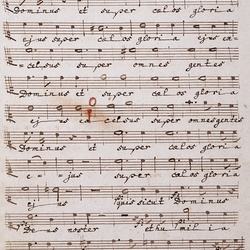 Dominus et super cælos gloria
ejus super cælos gloria ejus cæ
=celsus super omnes gentes
Dominus et super cælos gloria
ejus excelsus super omnes gentes
Dominus et super cælos gloria
e = jus super cælos gloria
ejus quis sicut Dominus
Deus noster et humilia